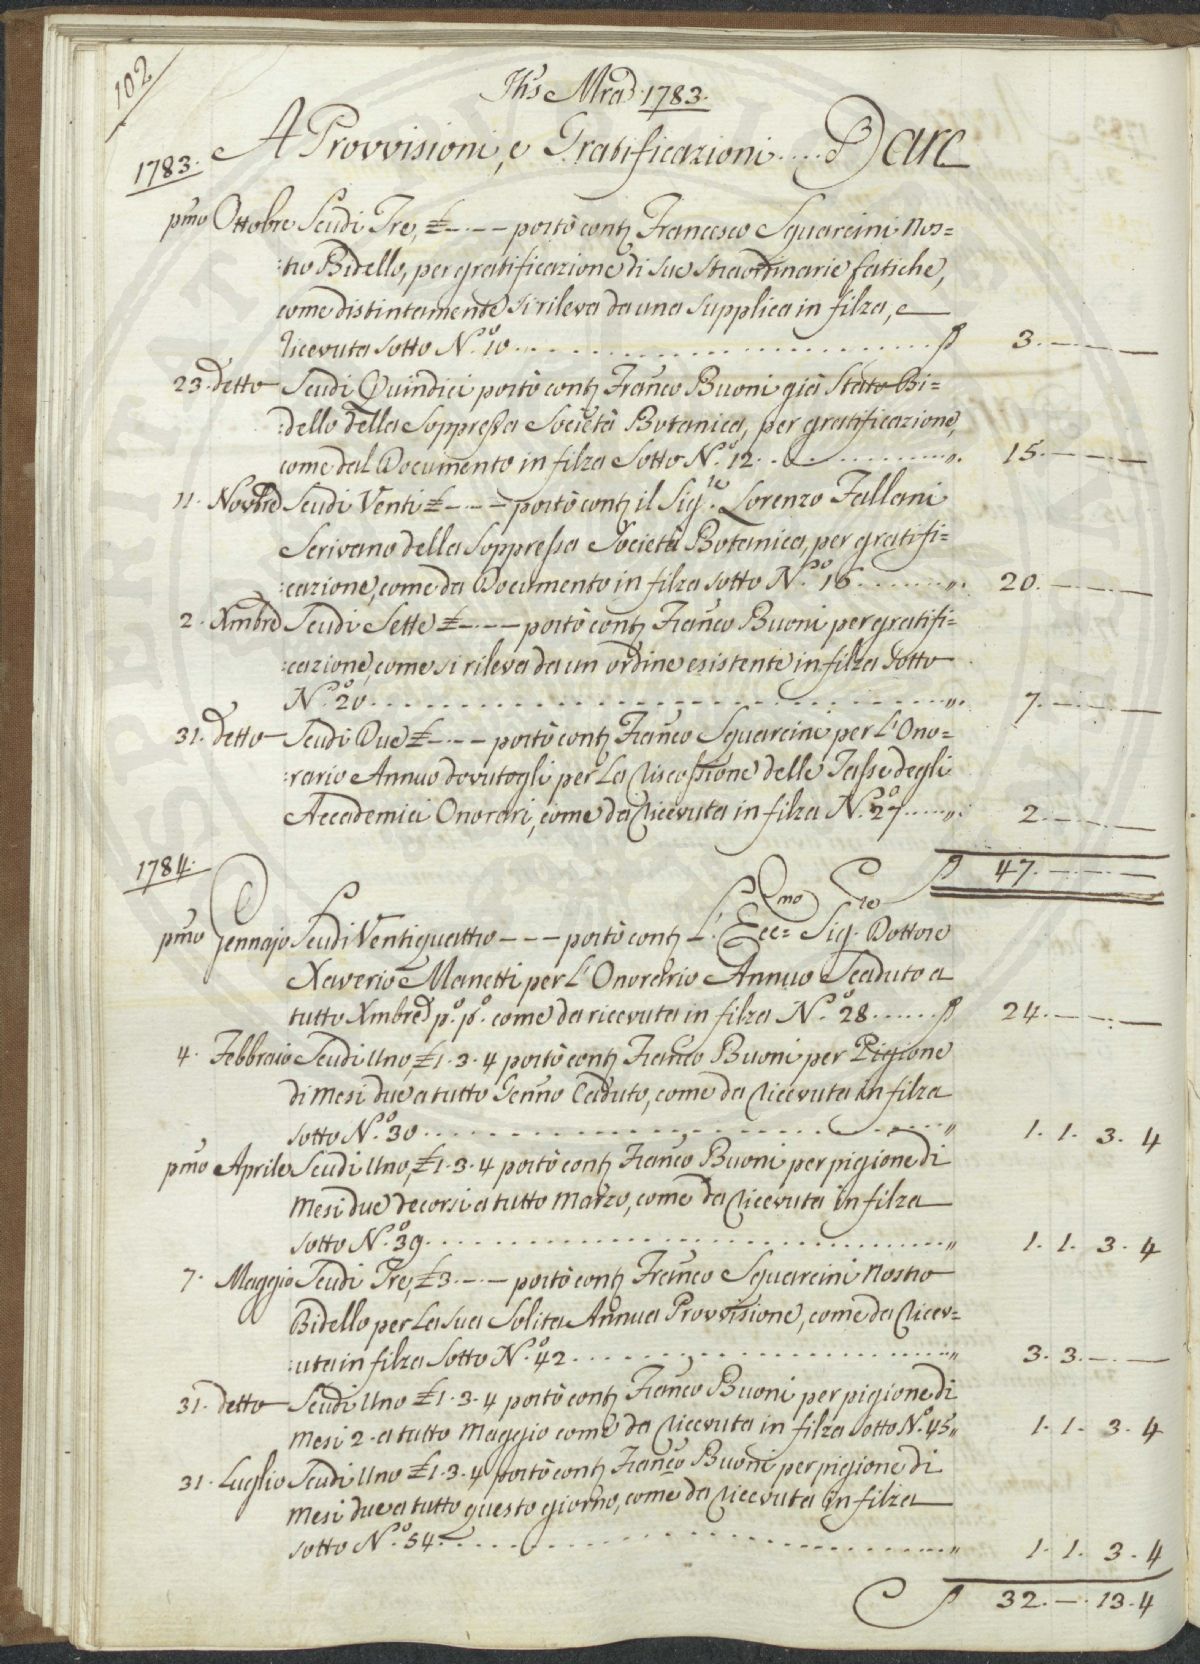 102
Jhs Mra 1783.
A Provvisioni, e Gratificazioni .... Dare
1783.
pmo Ottobre Scudi Tre, £ -.-.- portò contj Francesco Squarcini Nos=
:tro Bidello, per gratificazione di sue straordinarie fatiche,
come distintamente si rileva da una supplica in filza, e
ricevuta sotto N.o 10 ........ 3. - . - . -
23. detto Scudi Quindici portò contj Franco Buoni già Stato Bi=
:dello della Soppressa Società Botanica, per gratificazione,
come dal Documento in filza Sotto N.o 12 ........ ". 15. - . - . -
11. Novbre Scudi Venti £ -.-.- portò contj il Sigre. Lorenzo Fallani
Scrivano della Soppressa Società Botanica, per gratifi=
:cazione, come da Documento in filza sotto N.o 16 ........ ". 20. - . - . -
2. Xmbre Scudi Sette £ -.-.- portò contj Franco Buoni per gratifi=
:cazione, come si rileva da un ordine esistente in filza sotto
N.o 20 ........ ". 7. - . - . -
31. detto Scudi Due £ -.-.- portò contj Franco Squarcini per L'Ono=
:rario Annuo dovutogli per La Riscossione delle Tasse degli
Accademici Onorari, come da Ricevuta in filza N.o 27 ...... ". 2. - . - . -
47. - . - . -
1784.
pmo Gennajo Scudi Ventiquattro - - - portò contj L'Eccmo Sigre Dottore
Xaverio Manetti per L'Onorario Annuo Scaduto a
tutto Xmbre p.o p.o come da ricevuta in filza N.o 28 ...... 24. - . - . -
4. Febbraio Scudi Uno, £1.3.4 portò contj Franco Buoni per Pigione
di Mesi due a tutto Genno Caduto, come da Ricevuta in filza
sotto N.o 30 ........ " 1. 1. 3. 4
pmo Aprile Scudi Uno, £1.3.4 portò contj Franco Buoni per pigione di
Mesi due decorsi a tutto Marzo, come da Ricevuta in filza
sotto N.o 39 ........ " 1. 1. 3. 4
7. Maggio Scudi Tre, £3.-.- portò contj Franco Squarcini Nostro
Bidello per La sua Solita Annua Provvisione, come da Ricev=
:uta in filza Sotto N.o 42 ........ " 3. 3. - . -
31. detto Scudi Uno £1.3.4 portò contj Franco Buoni per pigione di
Mesi 2. a tutto Maggio come da Ricevuta in filza sotto N.o 45 " 1. 1. 3. 4
31. Luglio Scudi Uno £1.3.4 portò contj Franco Buoni per pigione di
Mesi due a tutto questo giorno, come da Ricevuta in filza
sotto N.o 54 ........ " 1. 1. 3. 4
32. - . 13. 4